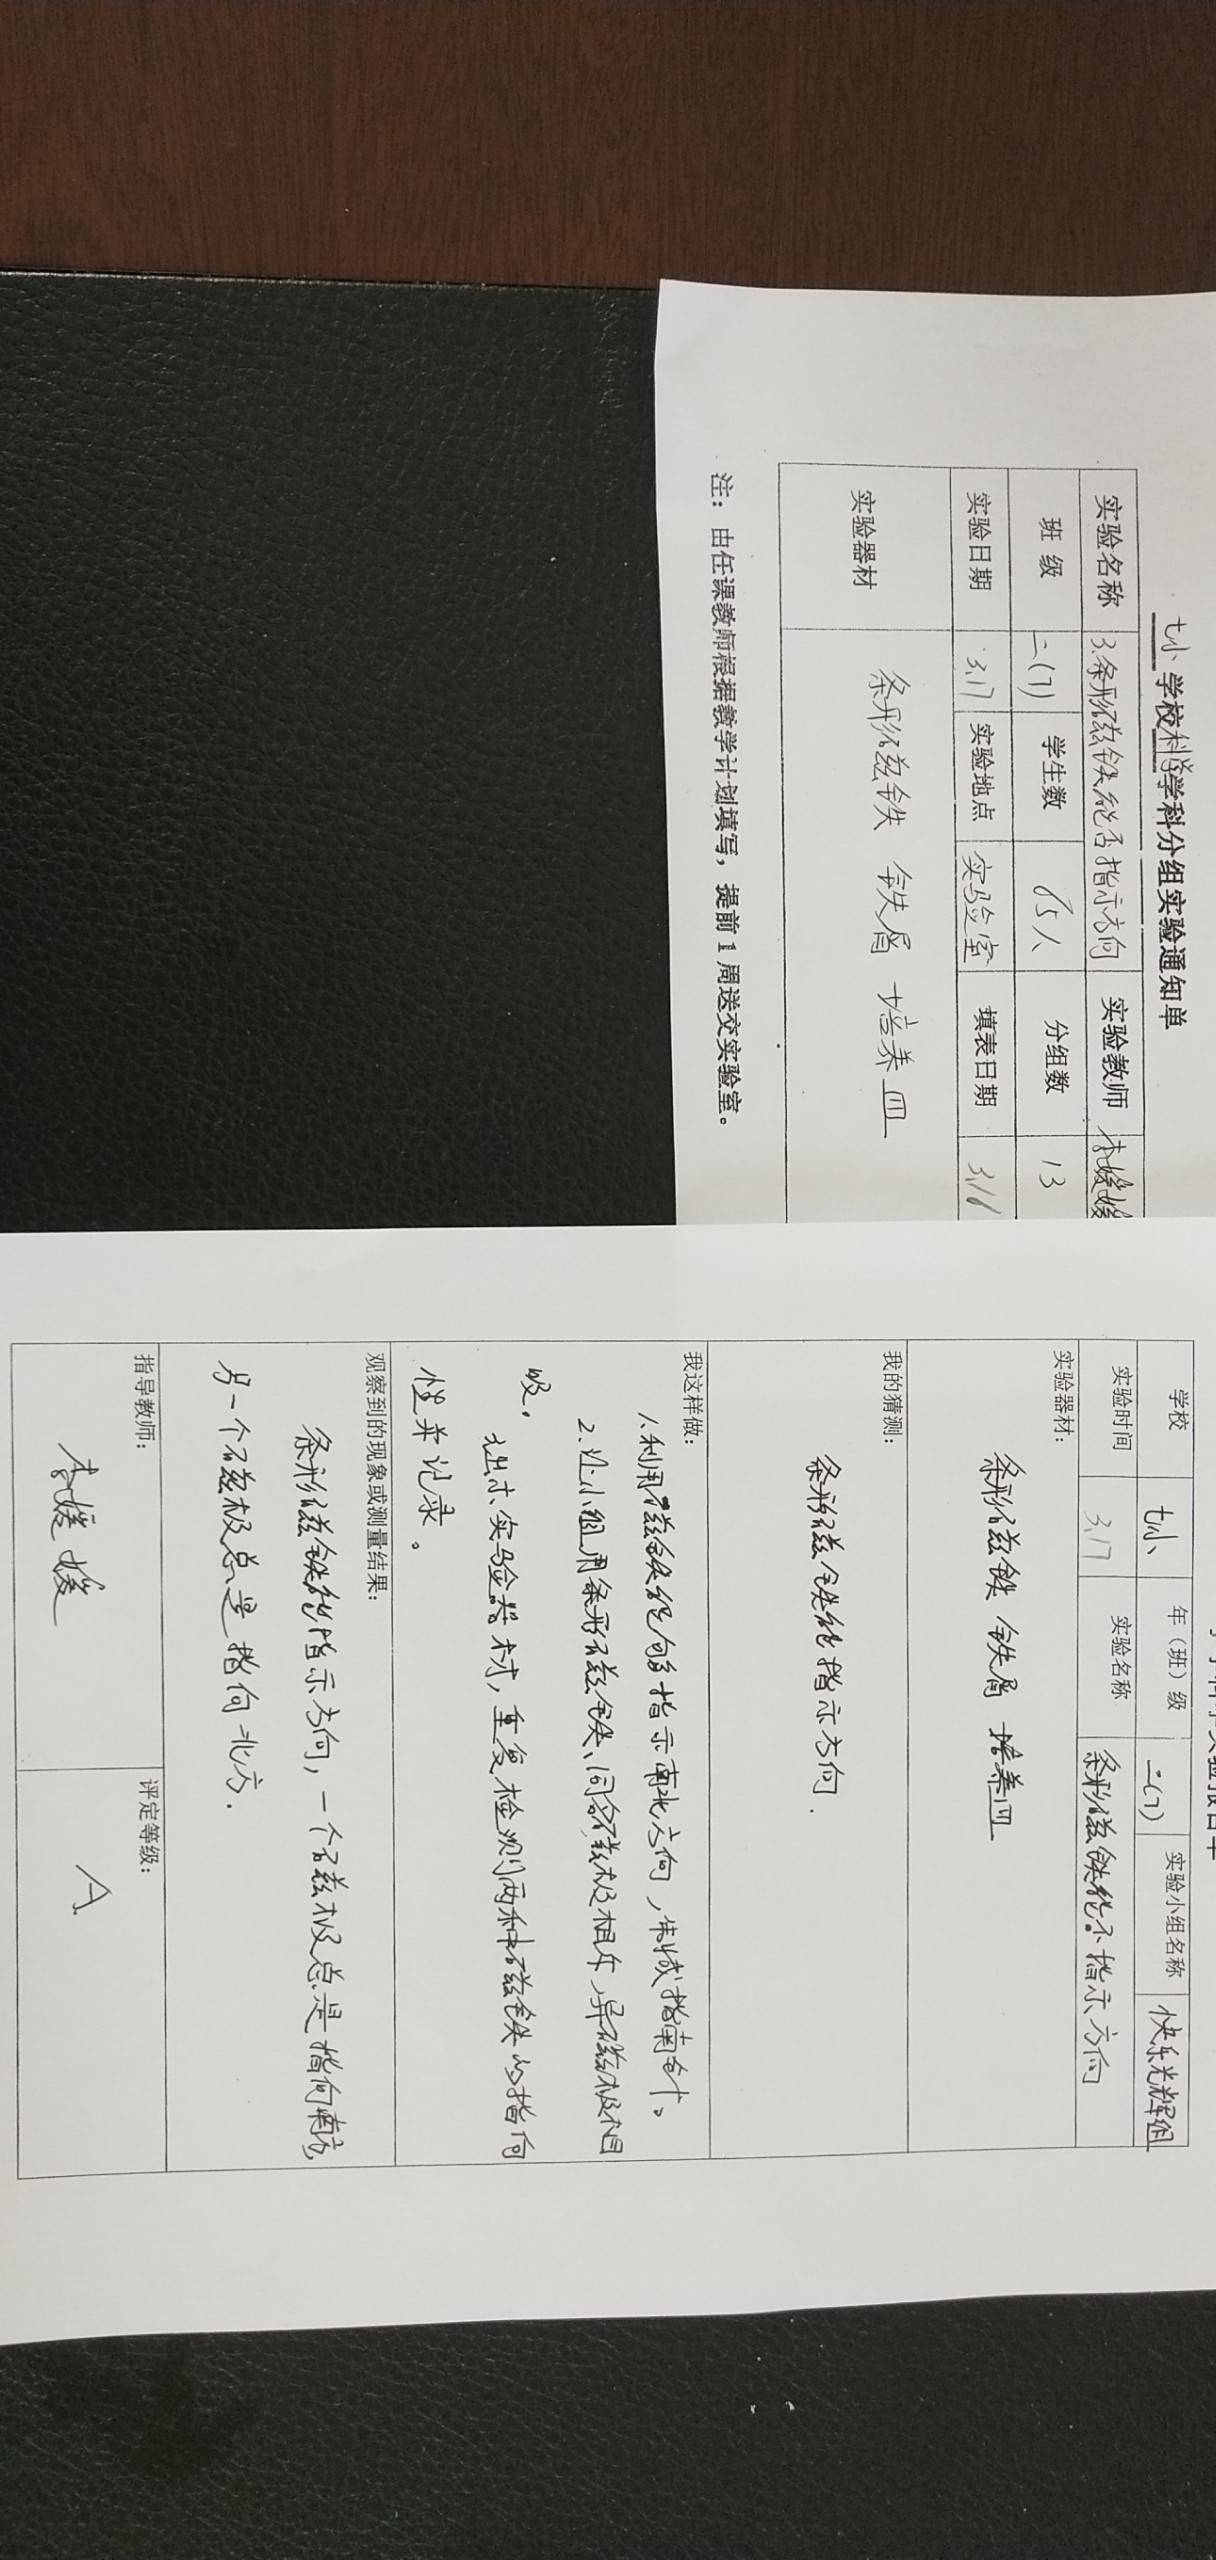 七小学校科学学科分组实验通知单
实验名称 3.条形磁铁能否指示方向 实验教师 李媛媛
班 级 二(7) 学生数 65人 分组数 13
实验日期 3.17 实验地点 实验室 填表日期 3.16
实验器材 条形磁铁 铁屑 培养皿
注：由任课教师根据教学计划填写，提前1周送交实验室。
学校 七小 年（班）级 二(7) 实验小组名称 快乐光辉组
实验时间 3.17 实验名称 条形磁铁能不指示方向
实验器材：
条形磁铁 铁屑 培养皿
我的猜测：
条形磁铁能指示方向.
我这样做：
1.利用磁铁能够指示南北方向，制成指南针。
2.让小组用条形磁铁、同名磁极相斥，异磁极相
吸，
实验器材，重复检测两种磁铁的指向
性并记录。
观察到的现象或测量结果：
条形磁铁能指示方向，一个磁极总是指向南方，
另一个磁极总是指向北方.
指导教师： 李媛媛 评定等级： A.